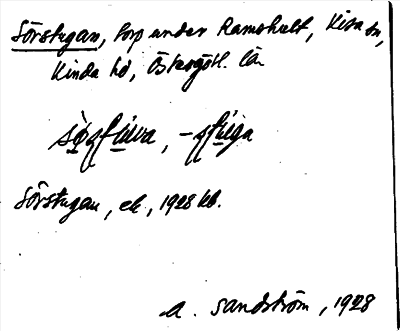 Sörstugan, torp under Ramshult, Kisa sn,
Kinda hd, Östergötl. län
Sörstugan, ek., 1928 kb.
A. Sandström, 1928